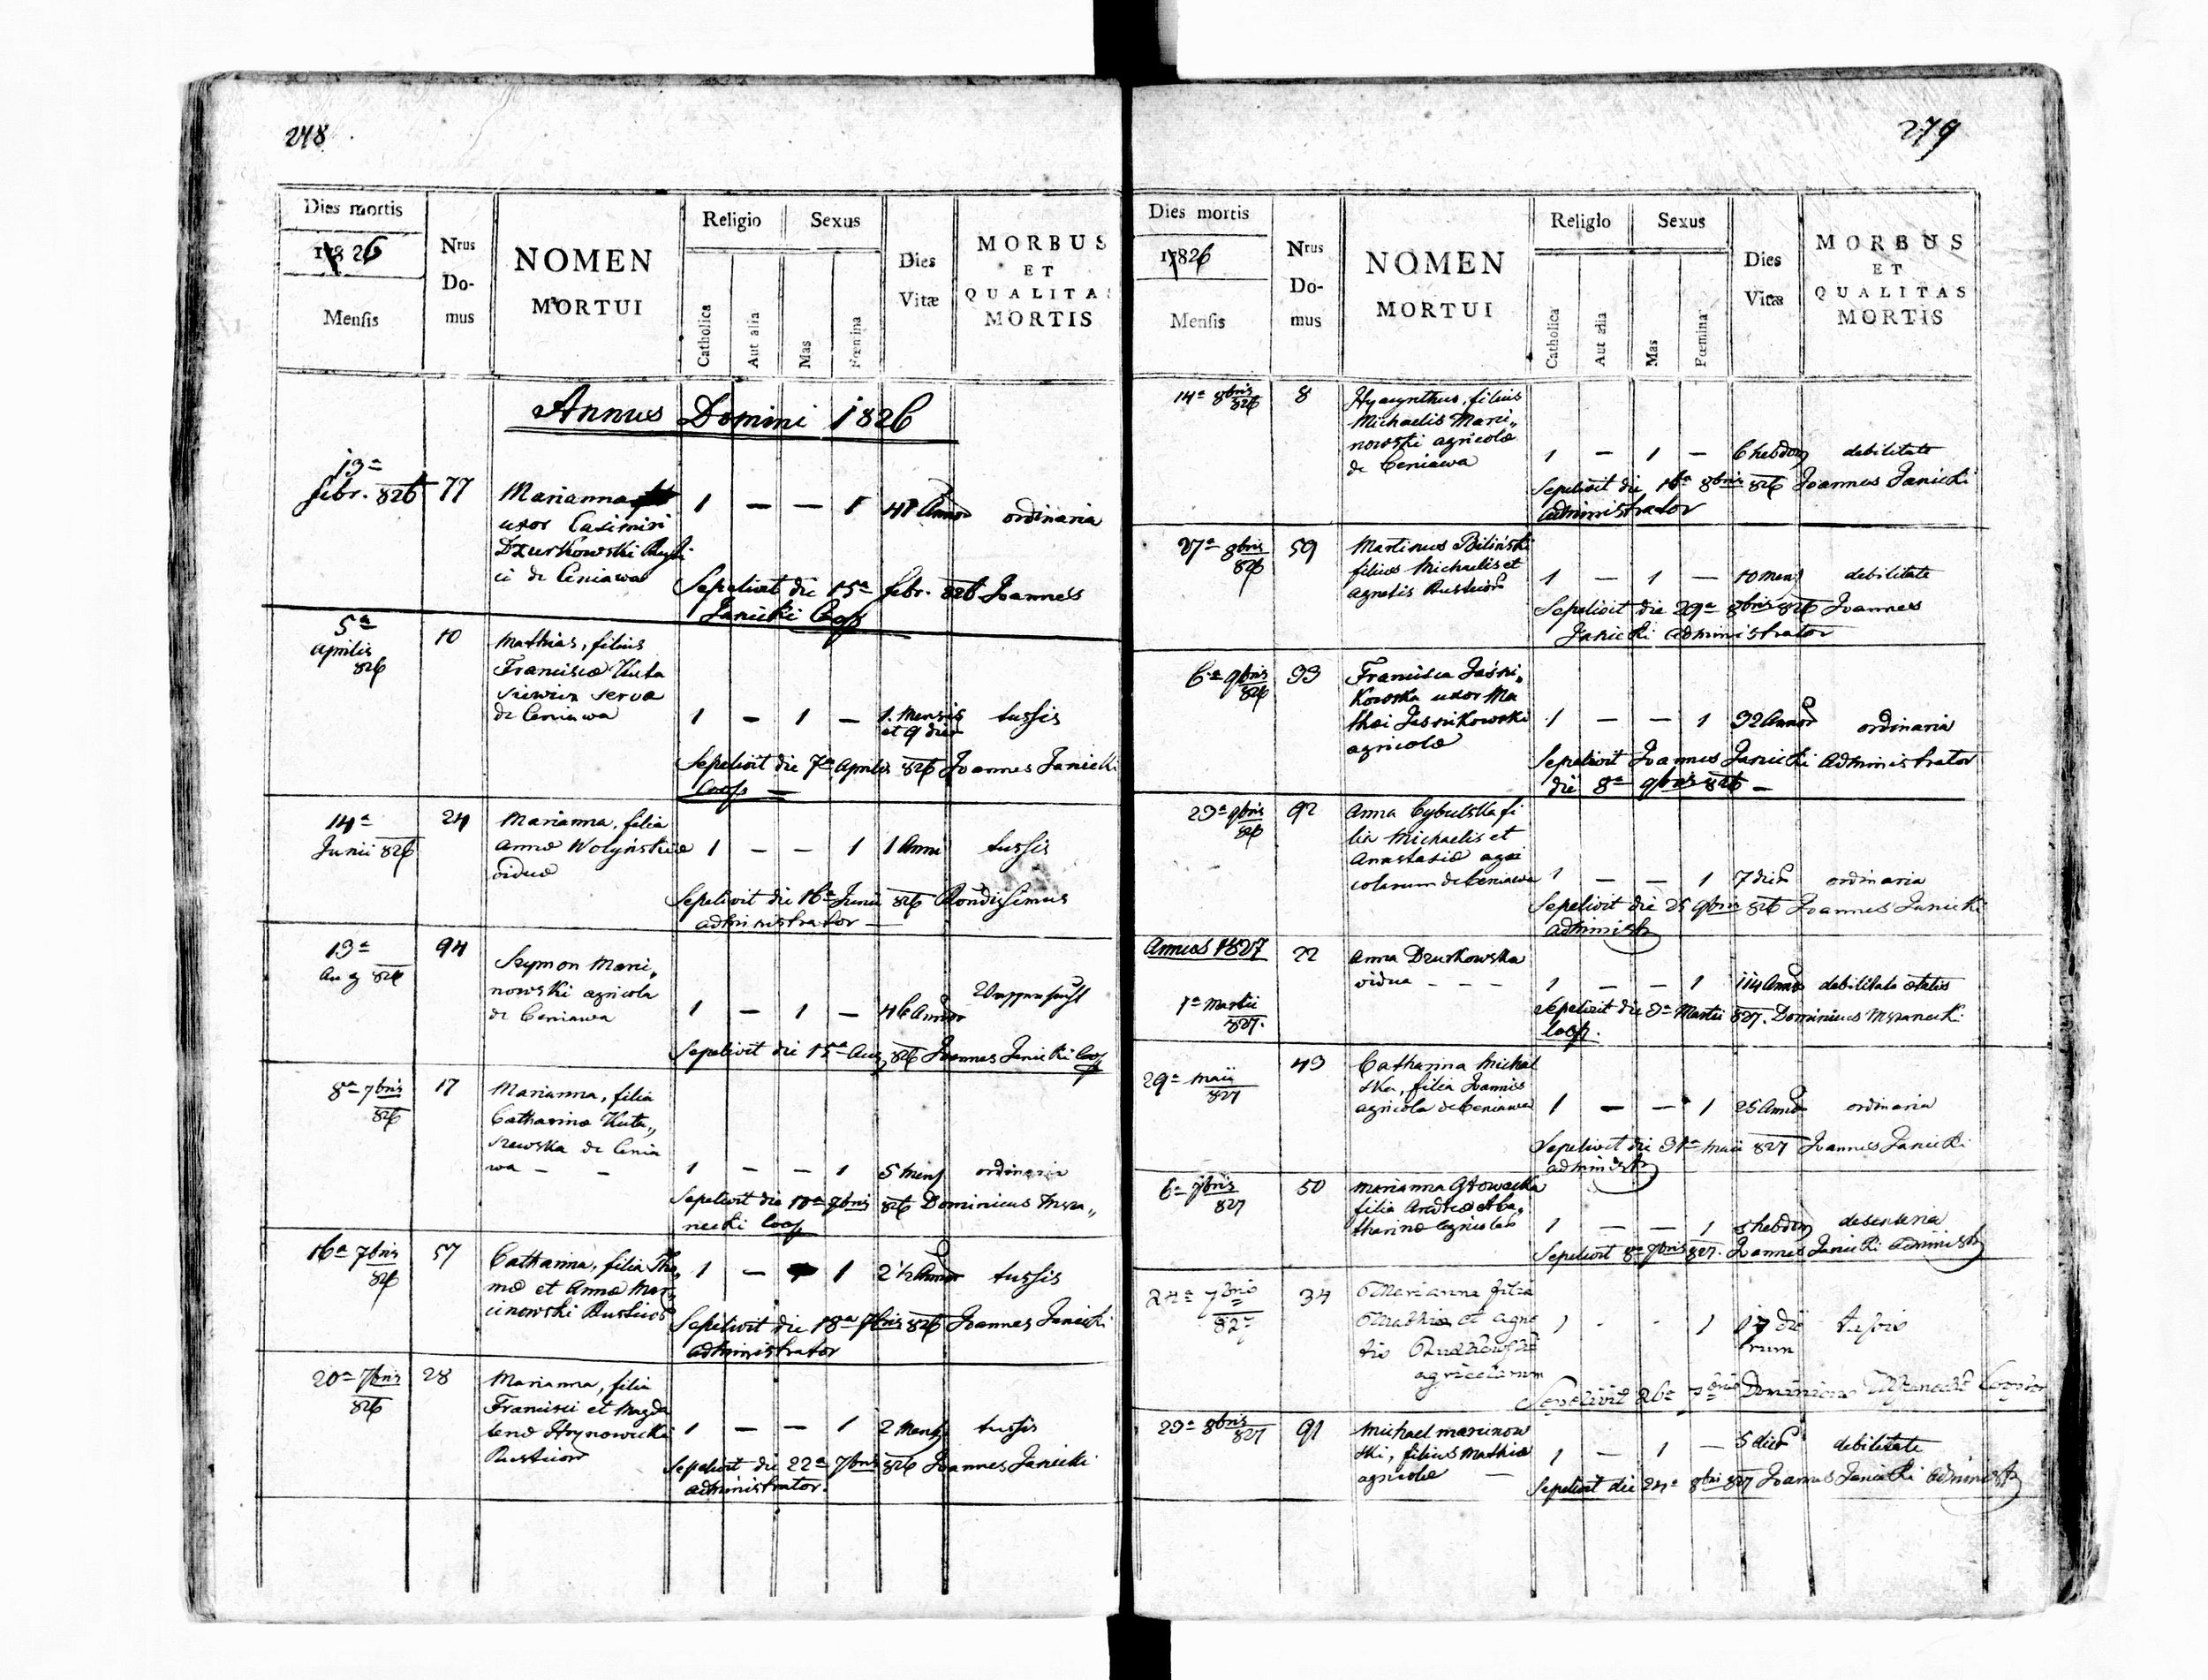 278
Dies mortis
1826
Mensis
Nrus
Do-
mus
NOMEN
MORTUI
Religio
Catholica
Aut alia
Sexus
Mas
Fœmina
Dies
Vitæ
MORBUS
ET
QUALITAS
MORTIS
Annus Domini 1826
13a
febr. 826 77 Marianna
uxor Casimiri
Dzurkowski Rusti-
ci de Ceniawa
1 — — 1 48 Annor ordinaria
Sepelivit die 15a febr. 826 Joannes
Janicki Coop
5a
Aprilis
826
10
Mathias, filius
Franciscæ Kuta
siewicz servæ
de Ceniawa
1 — 1 — 1. Mensis
et 9 dier
tussis
Sepelivit die 7a Aprilis 826 Joannes Janicki
Coop —
14a
Junii 826
24
Marianna, filia
Annæ Wolyńskiæ
viduæ
1 — — 1 1 Anni tussis
Sepelivit die 16a Junii 826 Rondissimus
administrator —
13a
Aug 826
94
Szymon Mari„
nowski agricola
de Ceniawa
1 — 1 — 46 Annor
Sepelivit die 15a Aug 826 Joannes Janicki Coop
8a 7bris
826
17
Marianna, filia
Catharinæ Kuta„
szewska de Cenia
wa — —
1 — — 1 5 Mens ordinaria
Sepelivit die 10a 7bris 826 Dominicus Msza„
necki Coop
16a 7bris
826
57
Catharina, filia Tho„
mæ et Annæ Mar„
cinowski Rusticor
1 — 1 2 1/2 Annor tussis
Sepelivit die 18a 7bris 826 Joannes Janicki
administrator
20a 7bris
826
28
Marianna, filia
Francisci et Magda
lenæ Hrynowicki
Rusticor
1 — — 1 2 Mens tussis
Sepelivit die 22a 7bris 826 Joannes Janicki
administrator.
279
Dies mortis
1826
Mensis
Nrus
Do-
mus
NOMEN
MORTUI
Religio
Catholica
Aut alia
Sexus
Mas
Fœmina
Dies
Vitæ
MORBUS
ET
QUALITAS
MORTIS
14a 8bris
826
8
Hyacynthus, filius
Michaelis Mari„
nowski agricolæ
de Ceniawa
1 — 1 — 6 hebdom debilitate
Sepelivit die 16a 8bris 826 Joannes Janicki
administrator
27a 8bris
826
59
Martinus Biliński
filius Michaelis et
Agnetis Rusticor
1 — 1 — 10 mens debilitate
Sepelivit die 29a 8bris 826 Joannes
Janicki administrator
6a 9bris
826
33
Francisca Jaśni„
kowska uxor Ma
thæi Jasnikowski
agricolæ
1 — — 1 32 Annor ordinaria
Sepelivit Joannes Janicki Administrator
die 8a 9bris 826 —
23a 9bris
826
92
Anna Cybulska fi
lia Michaelis et
Anastasiæ agri
colarum de Ceniawa
1 — — 1 7 dier ordinaria
Sepelivit die 25 9bris 826 Joannes Janicki
administr
Annus 1827
1a Martii
827.
22
Anna Dzurkowska
vidua — — —
1 — — 1 114 Annor debilitate ætatis
Sepelivit die 3a Martii 827. Dominicus Mszanecki
Coop.
29a Maii
827
43
Catharina Michal
ska, filia Joannis
agricola de Ceniawa
1 — — 1 25 Annor ordinaria
Sepelivit die 31a Maii 827 Joannes Janicki
administr
6a 7bris
827
50
Marianna Głowacka
filia Andreæ et Ca„
tharinæ agricolar
1 — — 1 5 hebdom desenteria
Sepelivit 8a 7bris 827. Joannes Janicki administr
24a 7bris
827
34
Marianna filia
Mathiæ et Agne
tis
agricolarum
1 - - 1 17 die
rum
tussis
Sepelivit 26a 7bris Dominicus Mszanecki Cooptor
23a 8bris
827
91
Michael marcinow
ski, filius Mathiæ
agricolæ —
1 — 1 — 5 dier debilitate
Sepelivit die 24a 8bris 827 Joannes Janicki administr